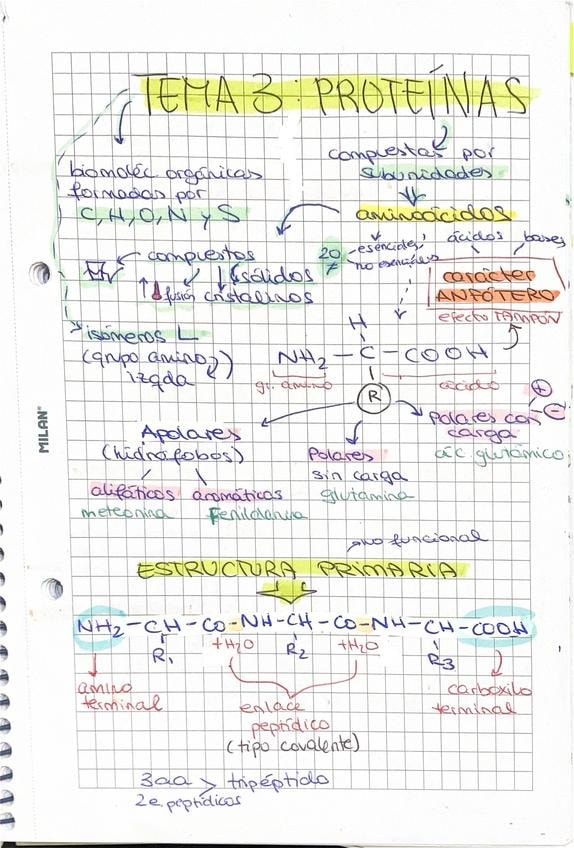 TEMA 3: PROTEÍNAS
biomoléc orgánicas
formadas por
C, H, O, N y S
compuestos por
subunidades
aminoácidos
20
≠
esenciales
no esenciales
ácidos
bases
carácter
ANFÓTERO
efecto TAMPÓN
compuestos
sólidos
fusión cristalinos
isómeros L
(grupo amino
izqda)
H
NH2 - C - COOH
gr. amino
ácido
R
Apolares
(hidrófobos)
alifáticos aromáticos
meteonina
Polares
sin carga
glutamina
Polares con
carga
+
-
ác. glutámico
no funcional
ESTRUCTURA PRIMARIA
NH2-CH-CO-NH-CH-CO-NH-CH-COOH
R1 +H2O R2 +H2O R3
amino
terminal
enlace
peptídico
(tipo covalente)
carboxilo
terminal
3aa > tripéptido
2e. peptídicos
MILAN